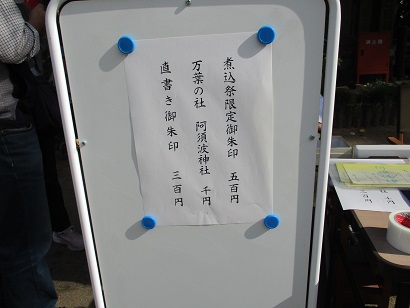 煮込祭限定御朱印 五百円
万葉の社 阿須波神社 千円
直書き御朱印 三百円